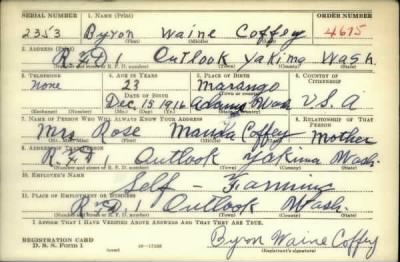 SERIAL NUMBER 1. NAME (Print) ORDER NUMBER
2353 Byron Waine Coffey 4615
(First) (Middle) (Last)
2. ADDRESS (Print)
R.F.D. 1 Outlook Yakima Wash.
(Number and street or R. F. D. number) (Town) (County) (State)
3. TELEPHONE 4. AGE IN YEARS 5. PLACE OF BIRTH 6. COUNTRY OF CITIZENSHIP
none 23 Marango
DATE OF BIRTH (Town or county)
Dec. 15 1916 Adams Wash U.S.A
(Exchange) (Number) (Mo.) (Day) (Yr.) (State or country)
7. NAME OF PERSON WHO WILL ALWAYS KNOW YOUR ADDRESS 8. RELATIONSHIP OF THAT PERSON
Mrs. Rose Coffey Mother
(Mr., Mrs., Miss) (First) (Middle) (Last)
9. ADDRESS OF THAT PERSON
R.F.D. 1 Outlook Yakima Wash.
(Number and street or R. F. D. number) (Town) (County) (State)
10. EMPLOYER'S NAME
Self - Farming
11. PLACE OF EMPLOYMENT OR BUSINESS
R.F.D. 1 Outlook Wash.
(Number and street or R. F. D. number) (Town) (County) (State)
I AFFIRM THAT I HAVE VERIFIED ABOVE ANSWERS AND THAT THEY ARE TRUE.
REGISTRATION CARD
D. S. S. Form 1 Byron Waine Coffey
(Registrant's signature)